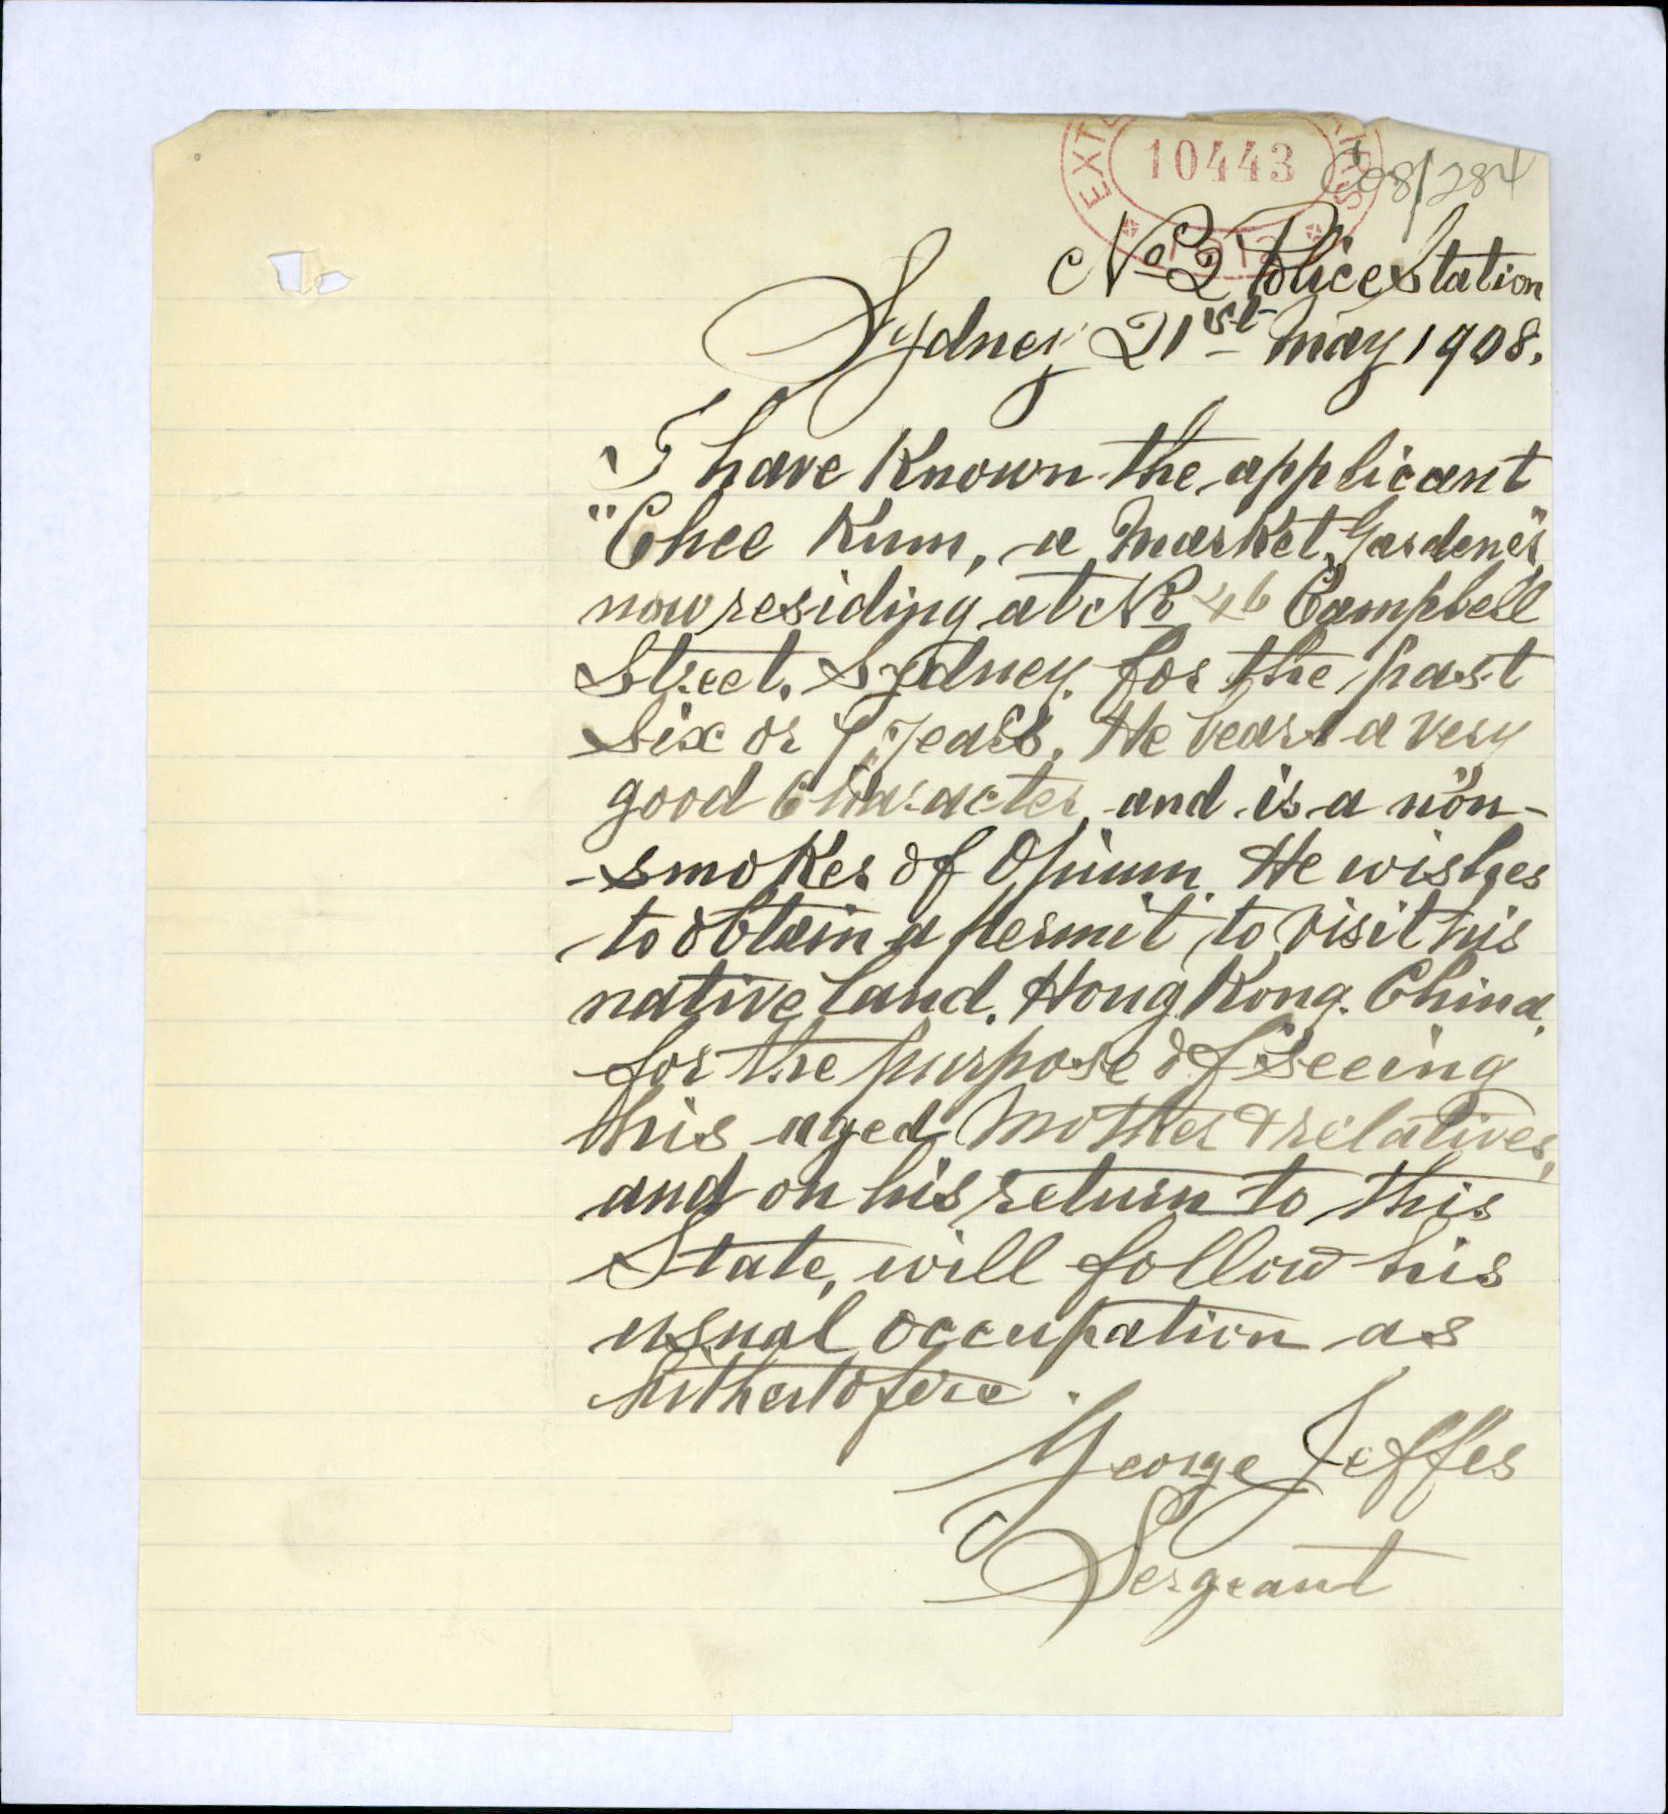 10443
C08/284
No 2 Police Station
Sydney 21st May 1908.
I have Known the applicant
"Chee Kum, a Market Gardener"
now residing at No 46 Campbell
Street, Sydney, for the past
six or 7 years. He bears a very
good Character, and is a "non-
-smoker of Opium. He wishes
to obtain a permit to visit his
native land. Hong Kong. China.
for the purpose of seeing
his aged Mother & relatives,
and on his return to this
State, will follow his
usual occupation as
hithertofore.
George Jeffes
Sergeant